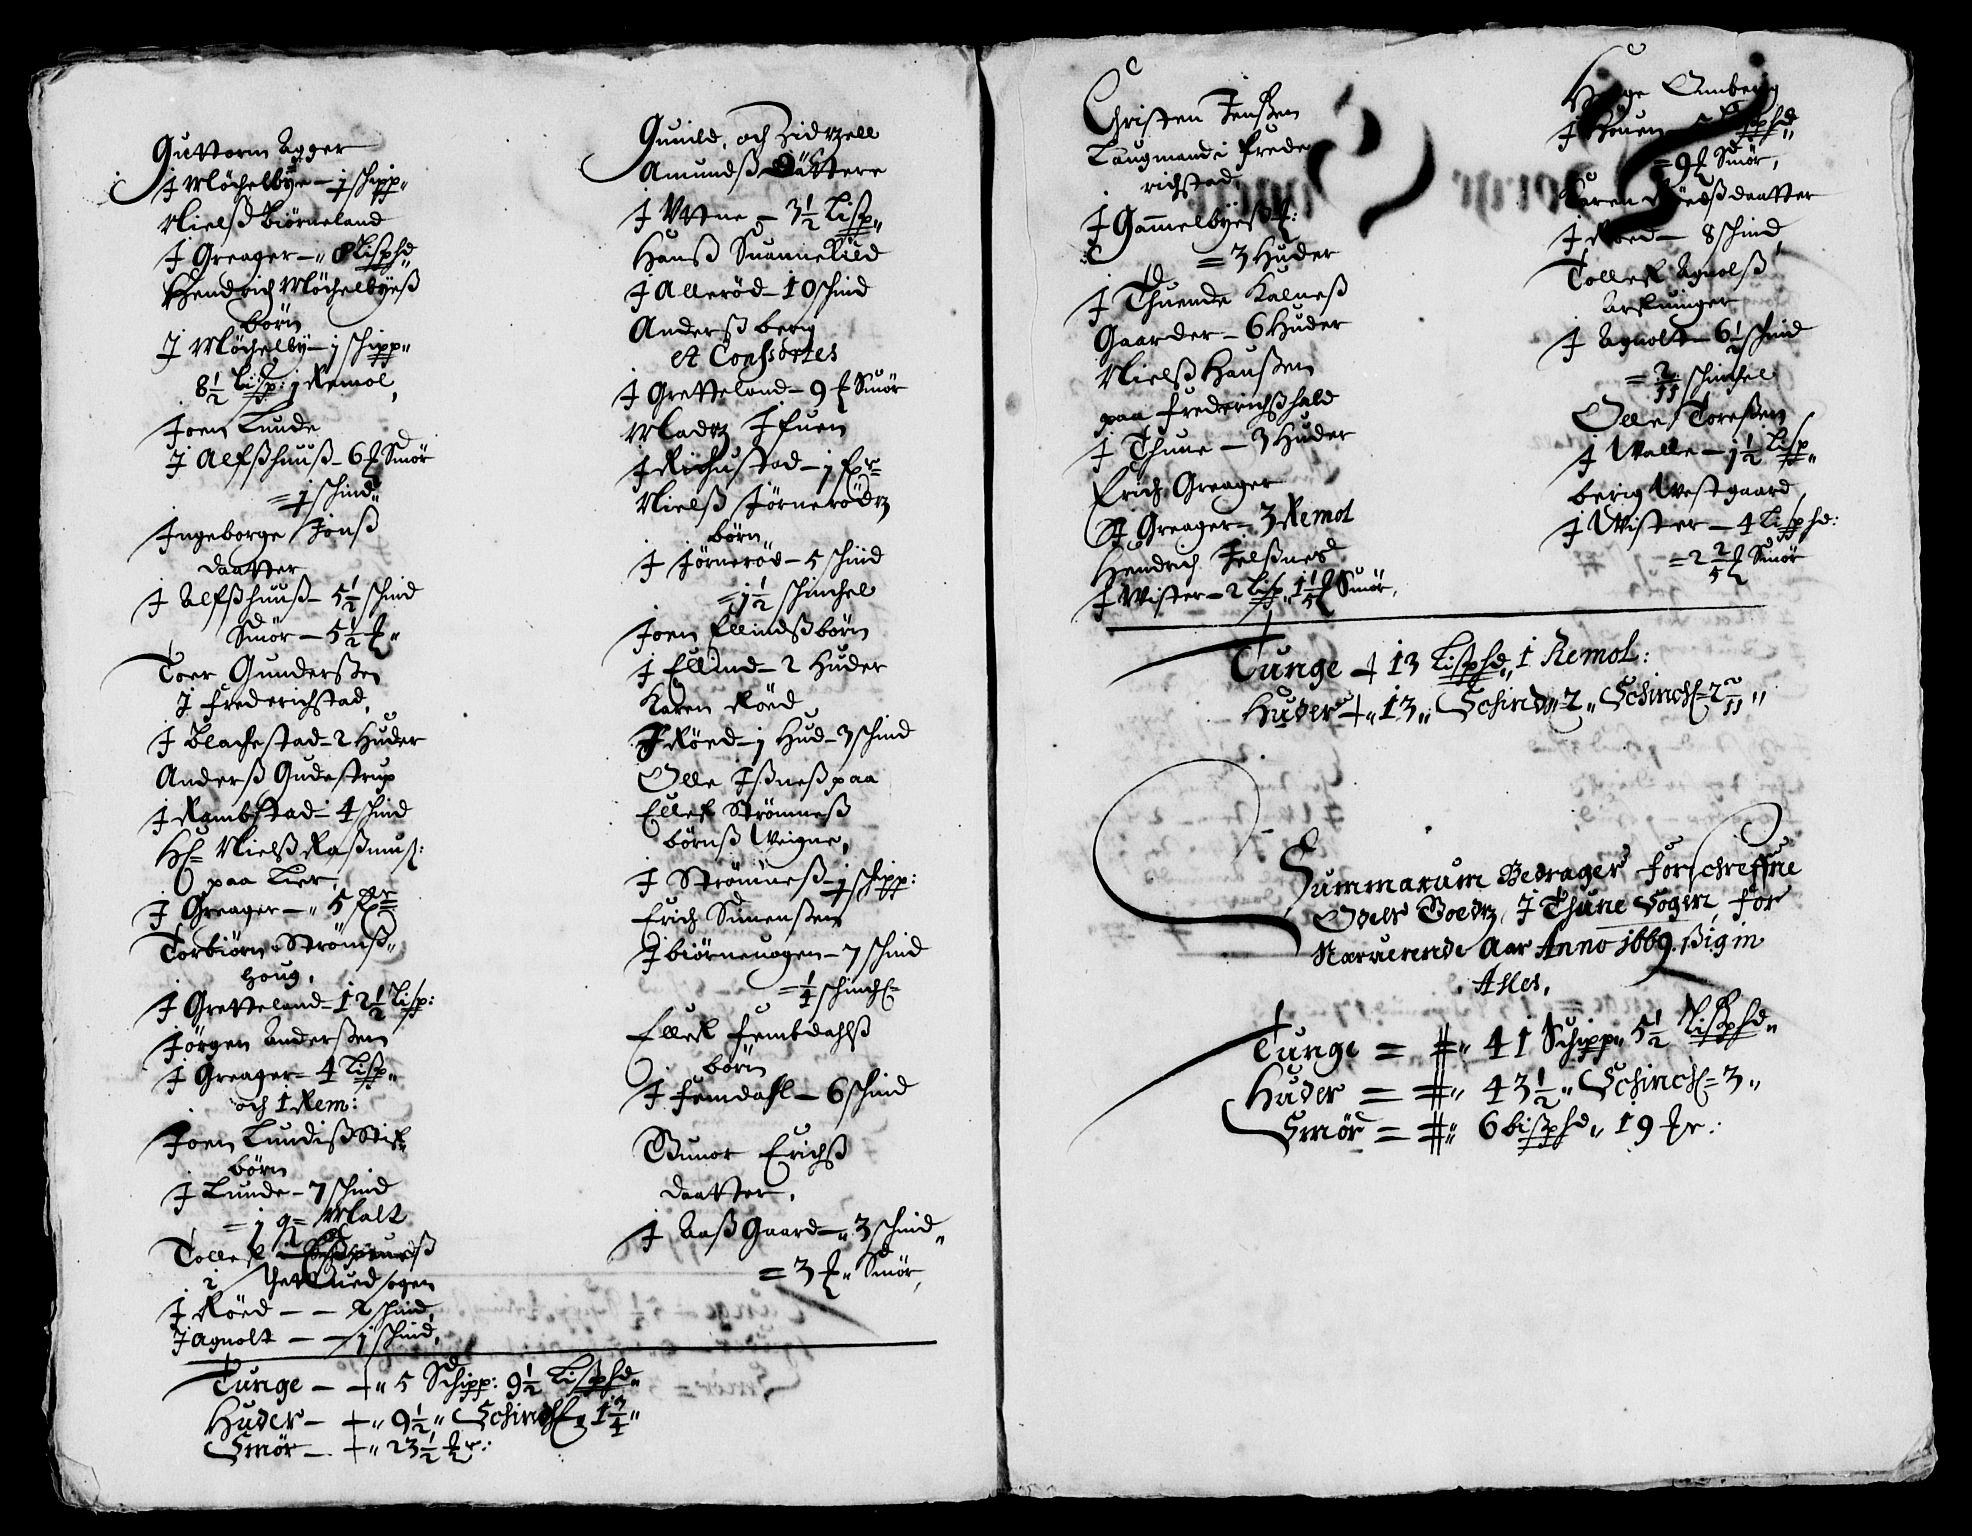 Guttorm Agger
J Möchelbÿe – 1 schipp„
Nielß Biörneland
J Greager – „ 8 Lispd„
Hendrich Möchelbÿeß
börn
J Möchelby – 1 schipp„
8½ Lisp: 1 Remol,
Joen Lunde
J Alfßhuuß – 6 ℔ Smör
= 1 schind„
Ingeborge Jonß
daatter
J Alfßhuuß – 5½ schind
Smör – 5½ ℔„
Toer Gunderßen
J Frederichstad,
J Blachestad – 2 Huder
Anderß Gudestrup
J Rambstad – 4 schind
Hr= Nielß Raßmuß:
paa Lier,
J Greager – „ 5
Torbiörn Strömß„
houg,
J Gretteland – 12½ Lisp:
Jörgen Anderßen
J Greager – 4 Lisp„
och 1 Rem:
Joen Lundiß Stif„
börn
J Lunde – 7 schind
= 1 q= Malt
Tollef
i sogen
J Röed – – 2 schind,
J Agnolt – – 1 schind,
Tunge – „ 5 Schipp: 9½ Lispd„
Huder – „ 9½ „ Schinch 1¾ „
Smör – „ 23½ ℔r:
Gunild, och Zidzell
Amundß Döttere
J Vttne – 3½ Lisp„
Hanß Suannekild
J Alleröd – 10 schind
Anderß berig
et Conßortes
J Gretteland – 9 ℔ Smör
Madtz Ifuen
J Richustad – 1
Nielß Jörnerödtz
börn
J Jörneröd – 5 schind
= 1½ schinchel
Joen Ellindß börn
J Ellind – 2 Huder
Karen Röed
J Röed – 1 Hud – 3 schind
Olle Ißneß paa
Ellef Strömneß
börnß Weigne,
J Strömneß – 1 schipp:
Erich Simenßen
J biörneuogen – 7 schind
= ¼ schinch=
Ellef Fembdahlß
börn
J Femdahl – 6 schind
Gunor Erichß
daatter,
J Aaß Gaard – „ 3 schind„
= 3 ℔„ Smör,
Christen Jenßen
Laugmand i Frede
richstad
J Gammelbÿeß
= 3 Huder
J Thuende Kalneß
Gaarder – 6 Huder
Nielß Hanßen
paa Frederichßhald
J Thune – 3 Huder
Erich Greager
J Greager – 3 Remol
Hendrich Jelßnes
J Wister – 2 Lisp„ 1⅕ ℔ Smör,
Helge Omberg
J
= 9 ℔ Smör,
Karen daatter
J Röed – 8 schind
Tollef Agnolß
Arfuinger
J Agnolt – 6½ schind
= 2/11 schinchel
Olle Toreßen
J Walle – 1½ Lisp„
berig Westgaard
J Wister – 4 Lispd:
= 2 2/5 ℔ Smör
Tunge 13 Lispd„ 1 Remol:
Huder „ 13 „ Schind „ 2 „ Schinch= 2 2/11 „
Summarum Bedrager forschreffne
Odels Goedz, J Thune Sogen, for
Nærverende Aar Anno 1669. sig in
Alles,
Tunge = „ 41 Schipp„ 5½ Lispd„
Huder = „ 43½ „ Schinch= 3 „
Smör = „ 6 bißpd„ 19 ℔r: